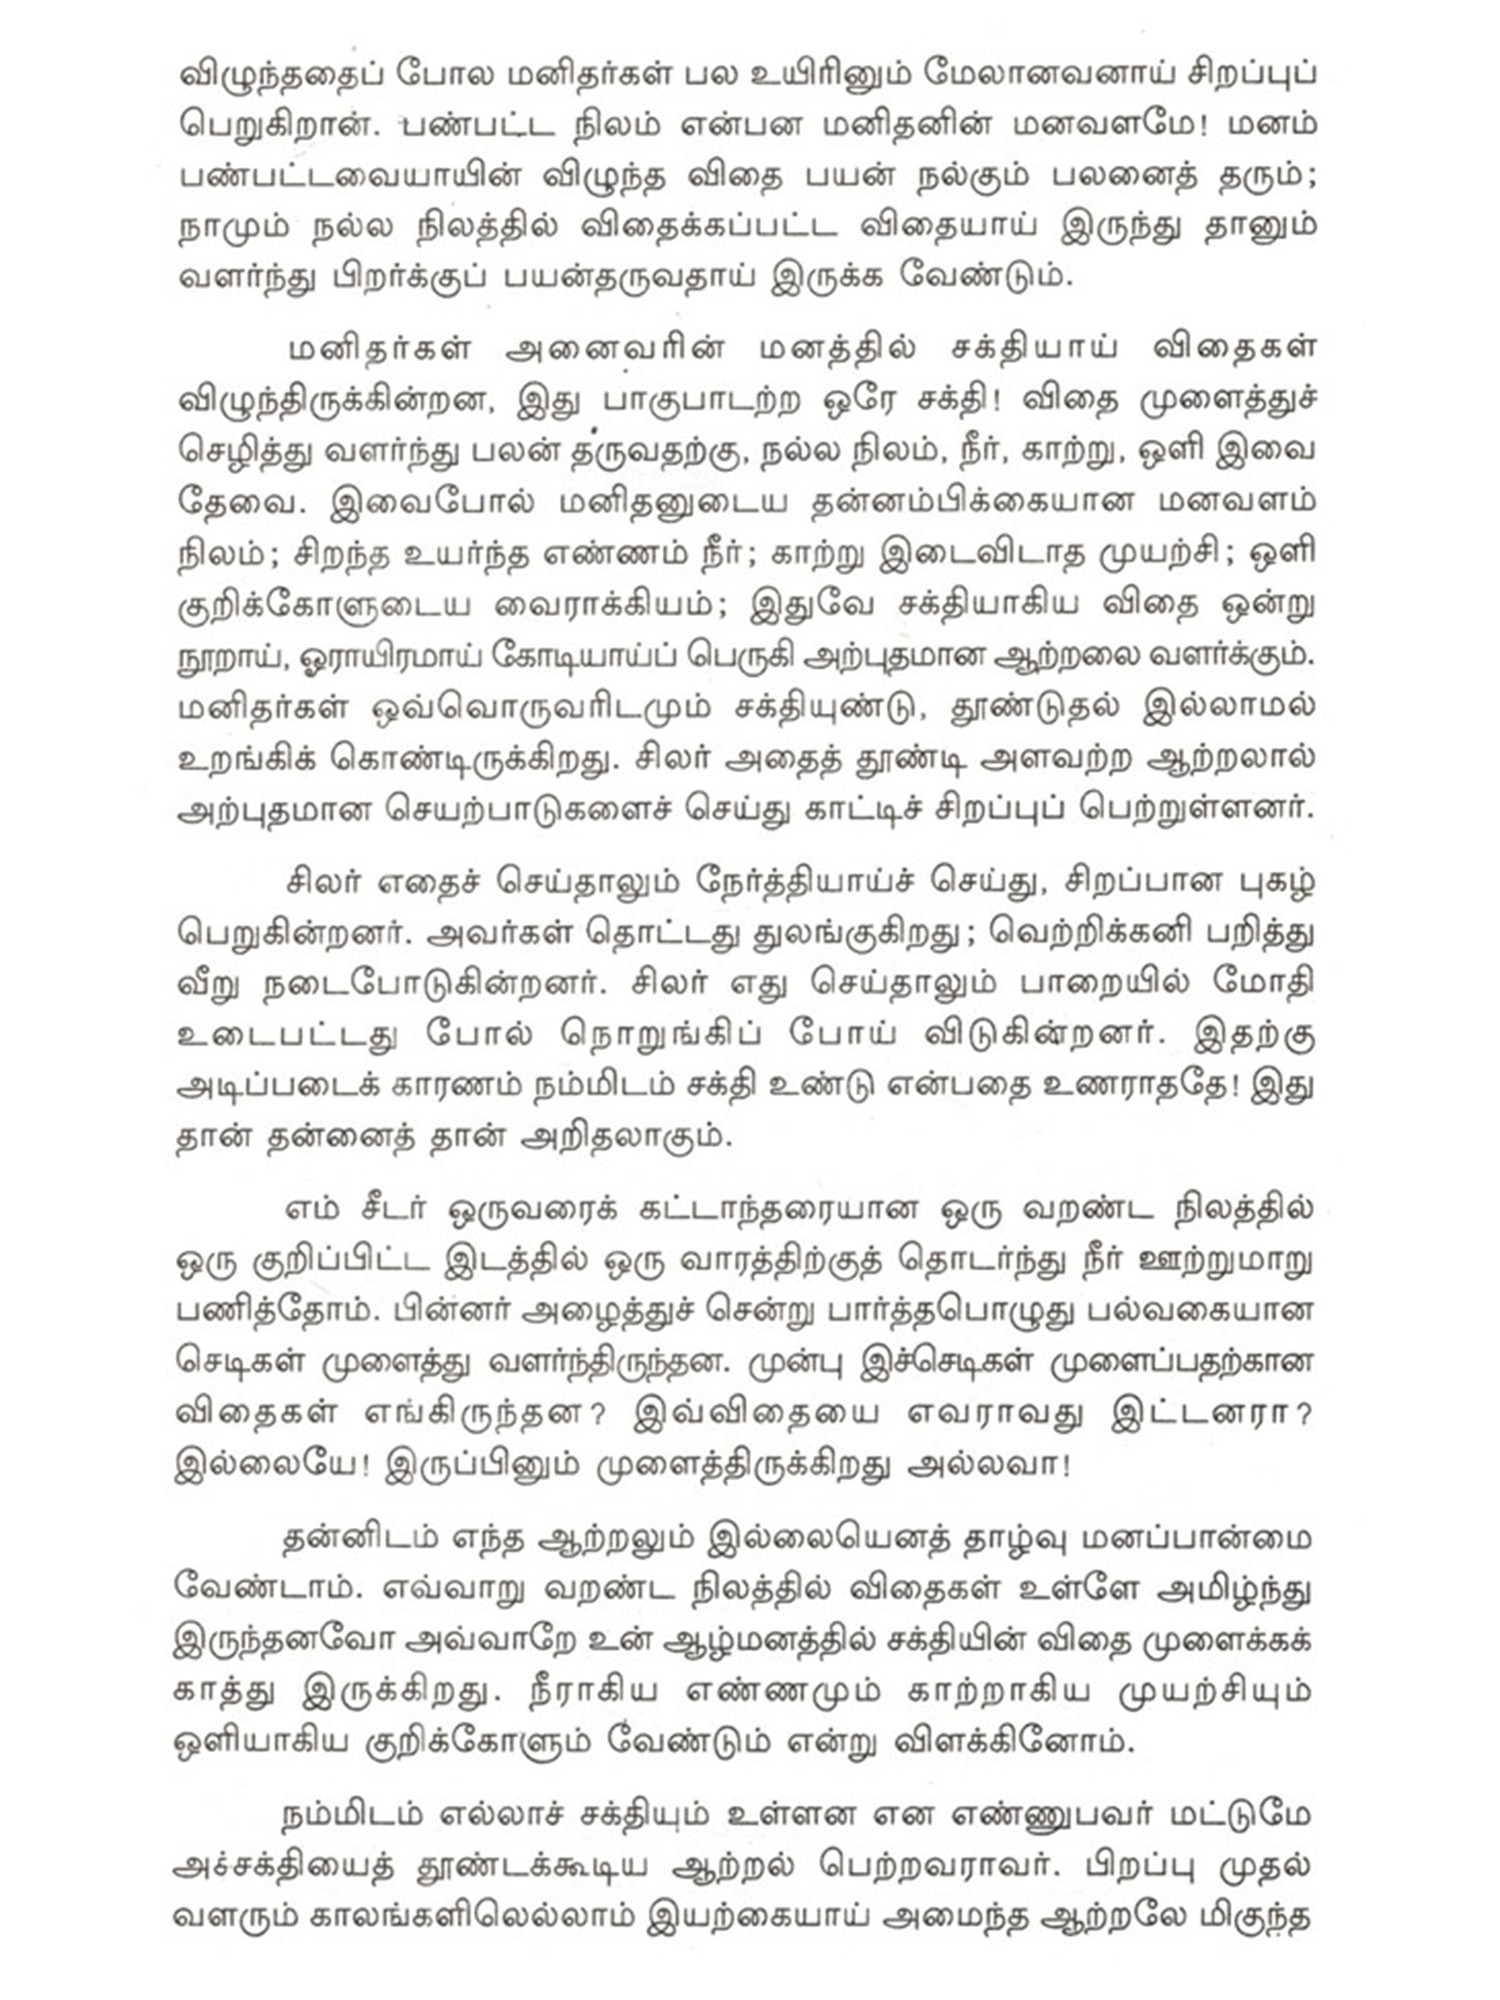 விழுந்ததைப் போல மனிதர்கள் பல உயிரினும் மேலானவனாய் சிறப்புப்
பெறுகிறான். பண்பட்ட நிலம் என்பன மனிதனின் மனவளமே! மனம்
பண்பட்டவையாயின் விழுந்த விதை பயன் நல்கும் பலனைத் தரும்;
நாமும் நல்ல நிலத்தில் விதைக்கப்பட்ட விதையாய் இருந்து தானும்
வளர்ந்து பிறர்க்குப் பயன்தருவதாய் இருக்க வேண்டும்.
மனிதர்கள் அனைவரின் மனத்தில் சக்தியாய் விதைகள்
விழுந்திருக்கின்றன, இது பாகுபாடற்ற ஒரே சக்தி! விதை முளைத்துச்
செழித்து வளர்ந்து பலன் தருவதற்கு, நல்ல நிலம், நீர், காற்று, ஒளி இவை
தேவை. இவைபோல் மனிதனுடைய தன்னம்பிக்கையான மனவளம்
நிலம்; சிறந்த உயர்ந்த எண்ணம் நீர்; காற்று இடைவிடாத முயற்சி; ஒளி
குறிக்கோளுடைய வைராக்கியம்; இதுவே சக்தியாகிய விதை ஒன்று
நூறாய், ஓராயிரமாய் கோடியாய்ப் பெருகி அற்புதமான ஆற்றலை வளர்க்கும்.
மனிதர்கள் ஒவ்வொருவரிடமும் சக்தியுண்டு, தூண்டுதல் இல்லாமல்
உறங்கிக் கொண்டிருக்கிறது. சிலர் அதைத் தூண்டி அளவற்ற ஆற்றலால்
அற்புதமான செயற்பாடுகளைச் செய்து காட்டிச் சிறப்புப் பெற்றுள்ளனர்.
சிலர் எதைச் செய்தாலும் நேர்த்தியாய்ச் செய்து, சிறப்பான புகழ்
பெறுகின்றனர். அவர்கள் தொட்டது துலங்குகிறது; வெற்றிக்கனி பறித்து
வீறு நடைபோடுகின்றனர். சிலர் எது செய்தாலும் பாறையில் மோதி
உடைபட்டது போல் நொறுங்கிப் போய் விடுகின்றனர். இதற்கு
அடிப்படைக் காரணம் நம்மிடம் சக்தி உண்டு என்பதை உணராததே! இது
தான் தன்னைத் தான் அறிதலாகும்.
எம் சீடர் ஒருவரைக் கட்டாந்தரையான ஒரு வறண்ட நிலத்தில்
ஒரு குறிப்பிட்ட இடத்தில் ஒரு வாரத்திற்குத் தொடர்ந்து நீர் ஊற்றுமாறு
பணித்தோம். பின்னர் அழைத்துச் சென்று பார்த்தபொழுது பல்வகையான
செடிகள் முளைத்து வளர்ந்திருந்தன. முன்பு இச்செடிகள் முளைப்பதற்கான
விதைகள் எங்கிருந்தன? இவ்விதையை எவராவது இட்டனரா?
இல்லையே! இருப்பினும் முளைத்திருக்கிறது அல்லவா!
தன்னிடம் எந்த ஆற்றலும் இல்லையெனத் தாழ்வு மனப்பான்மை
வேண்டாம். எவ்வாறு வறண்ட நிலத்தில் விதைகள் உள்ளே அமிழ்ந்து
இருந்தனவோ அவ்வாறே உன் ஆழ்மனத்தில் சக்தியின் விதை முளைக்கக்
காத்து இருக்கிறது. நீராகிய எண்ணமும் காற்றாகிய முயற்சியும்
ஒளியாகிய குறிக்கோளும் வேண்டும் என்று விளக்கினோம்.
நம்மிடம் எல்லாச் சக்தியும் உள்ளன என எண்ணுபவர் மட்டுமே
அச்சக்தியைத் தூண்டக்கூடிய ஆற்றல் பெற்றவராவர். பிறப்பு முதல்
வளரும் காலங்களிலெல்லாம் இயற்கையாய் அமைந்த ஆற்றலே மிகுந்த